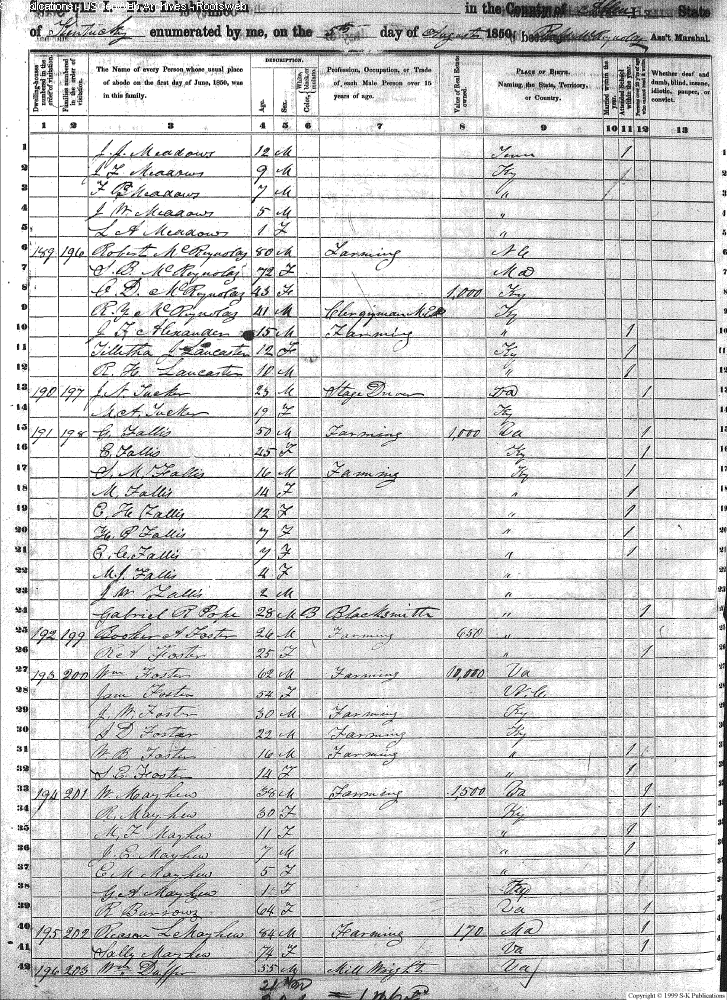 in the County of Allen State
of Kentucky enumerated by me, on the 5th day of August 1850. Ass't Marshal.
Dwelling-houses numbered in the order of visitation.
Families numbered in the order of visitation.
The Name of every Person whose usual place of abode on the first day of June, 1850, was in this family.
DESCRIPTION.
Age.
Sex.
Color,
Profession, Occupation, or Trade of each Male Person over 15 years of age.
Value of Real Estate owned.
PLACE OF BIRTH. Naming the State, Territory, or Country.
Married within the year.
Whether deaf and dumb, blind, insane, idiotic, pauper, or convict.
1 2 3 4 5 6 7 8 9 10 11 12 13
1 J. J. Meadows 12 M Tenn 1
2 Meadows 9 M Ky 1
3 Meadows 7 M "
4 J W Meadows 5 M "
5 L A Meadows 1 F "
6 189 196 Robert McReynolds 80 M Farming N C
7 S. B. McReynolds 72 F Md
8 D. McReynolds 43 F 1,000 Ky
9 McReynolds 41 M Clergyman Ky
10 Alexander 15 M Farming " 1
11 Tillitha J Lancaster 12 F Ky 1
12 R. H. Lancaster 10 M " 1
13 190 197 J. N. Tucker 23 M Stage Driver Va 1
14 M. A. Tucker 19 F Ky
15 191 198 G. Fallis 50 M Farming 1,000 Va 1
16 E. Fallis 45 F Ky 1
17 S. M. Fallis 16 M Farming Ky 1
18 M. Fallis 14 F " 1
19 E. H. Fallis 12 F " 1
20 H. P. Fallis 7 F " 1
21 E. C. Fallis 7 F " 1
22 M. J. Fallis 4 F "
23 J. W. Fallis 2 M "
24 Gabriel R. Pope 28 M B Blacksmith " 1
25 192 199 Booker A Foster 26 M Farming 650 "
26 R A Foster 25 F " 1
27 193 200 Wm Foster 62 M Farming 10,000 Va
28 Jane Foster 54 F N. C.
29 J. W. Foster 30 M Farming Ky
30 S D Foster 22 M Farming Ky
31 W. B. Foster 16 M Farming " 1
32 S. E. Foster 14 F " 1
33 194 201 W. Mayhew 38 M Farming 1500 Va 1
34 R. Mayhew 30 F Ky 1
35 M. F. Mayhew 11 F " 1
36 J. E. Mayhew 7 M " 1
37 E. M. Mayhew 5 F "
38 G. A Mayhew 1 F Ky
39 R Burrows 64 F Va 1
40 195 202 Mayhew 84 M Farming 170 Md 1
41 Sally Mayhew 74 F Va 1
42 196 203 Wm Duffer 55 M Mill Wright Va
Copyright © 1999 S-K Publications